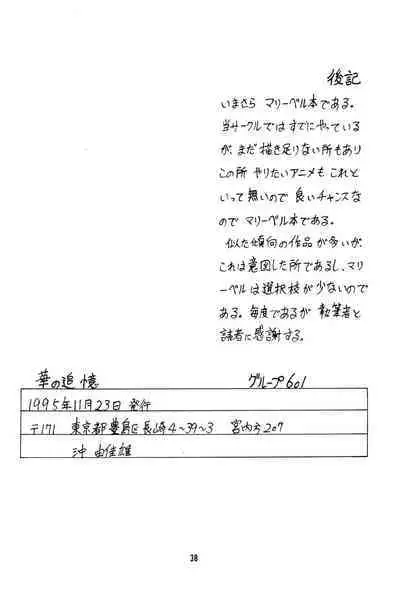 後記
いまさら マリーベル本である。
当サークルではすでにやっている
が、まだ描き足りない所もあり
この所 やりたいアニメも これと
いって無いので 良いチャンスな
ので マリーベル本である。
似た傾向の作品が多いが、
これは意図した所であるし、マリ
ーベルは選択枝が少ないので
ある。毎度であるが 執筆者と
読者に感謝する。
華の追憶 グループ601
1995年11月23日 発行
〒171 東京都豊島区長崎4〜39〜3 宮内方207
沖 由佳雄
38